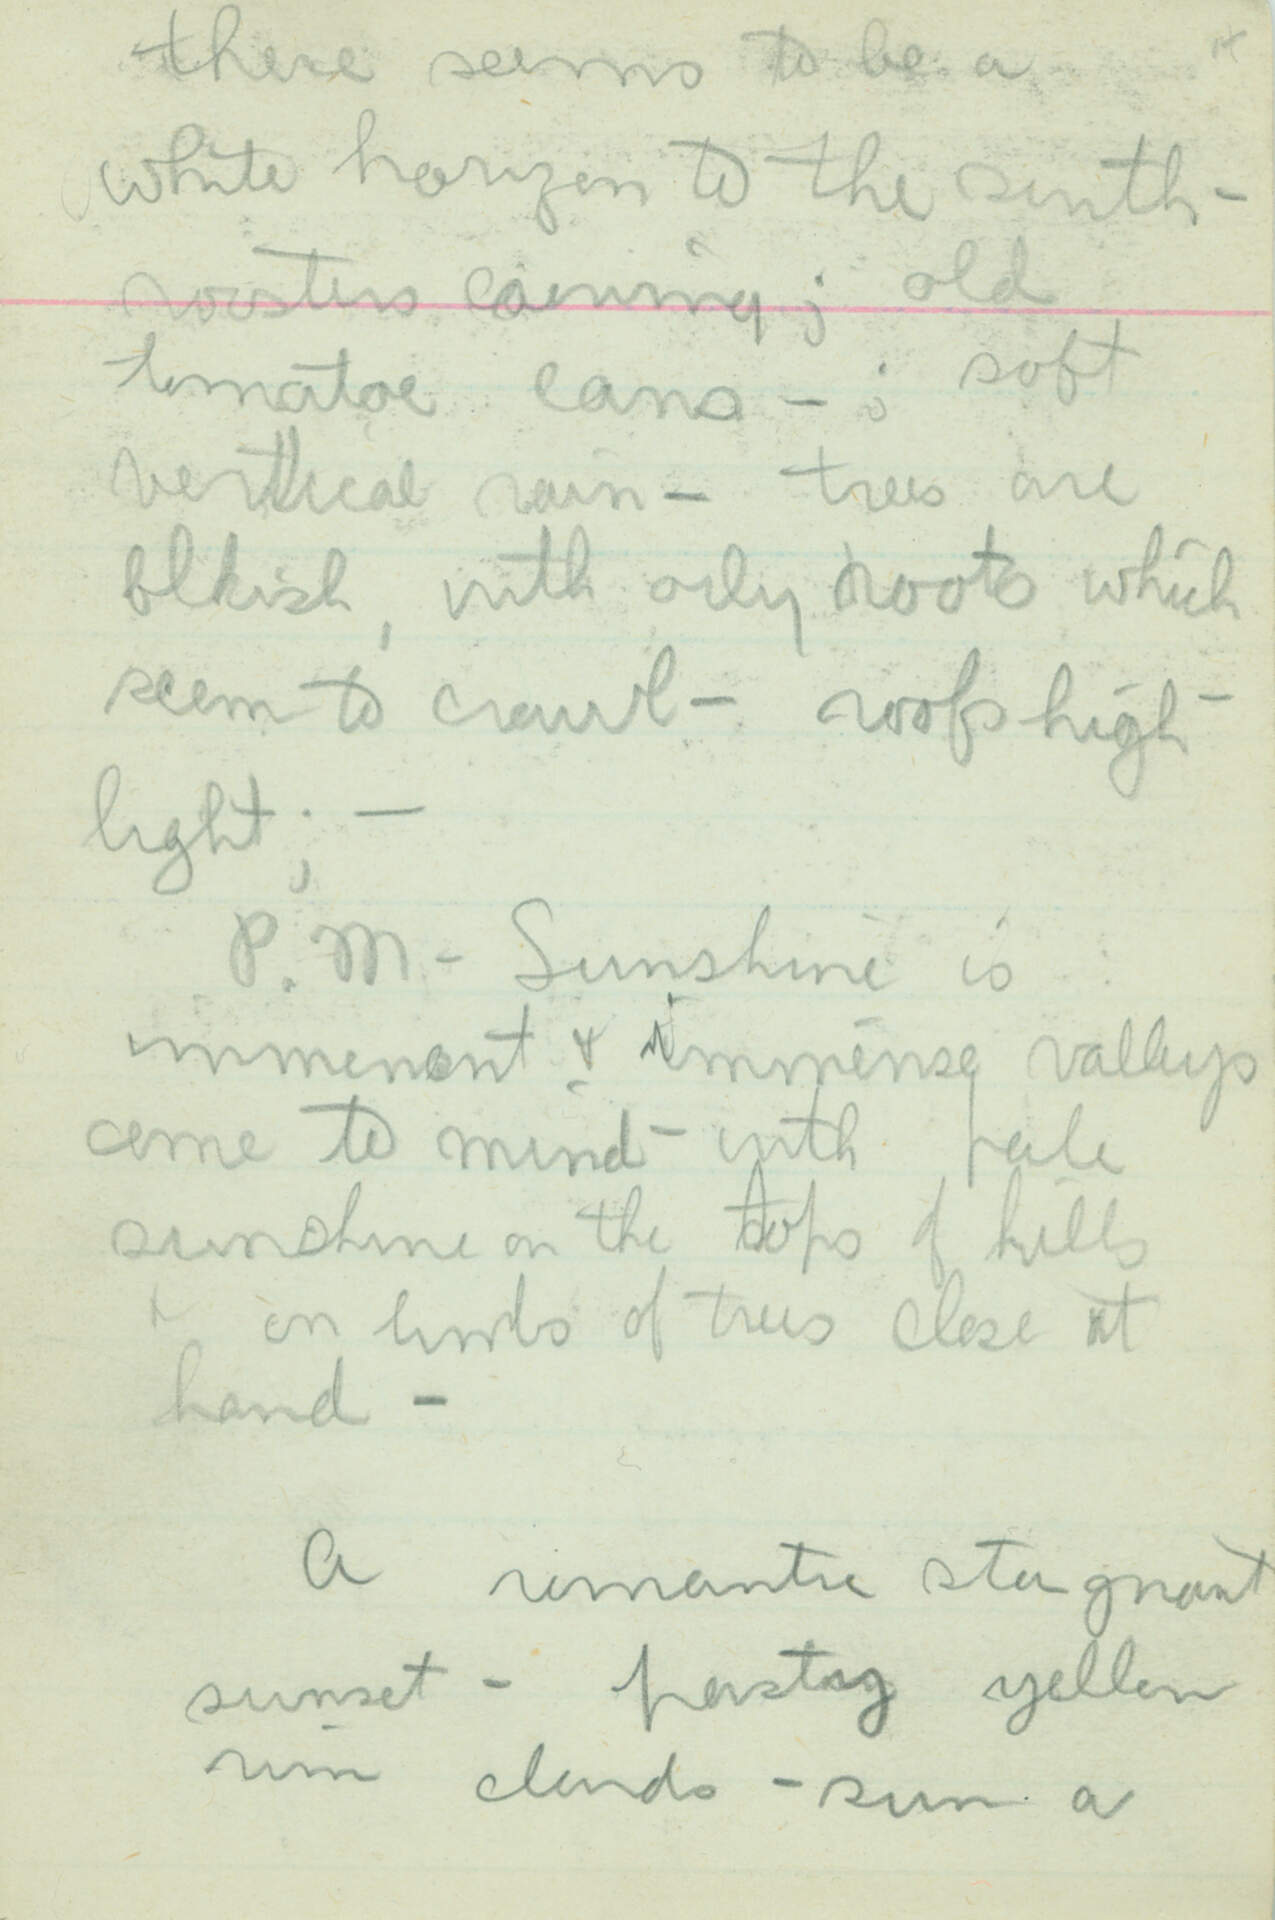 there seems to be a
white horizon to the south –
roosters crowing; old
tomatoe cans – ; soft
vertical rain – trees are
blkish, with oily roots which
seem to crawl – roofs high-
light; –
P.M – Sunshine is
immenent & immense valleys
come to mind – with pale
sunshine on the tops of hills
& on limbs of trees close at
hand –
A romantic stagnant
sunset – pasty yellow
rim clouds – sun a